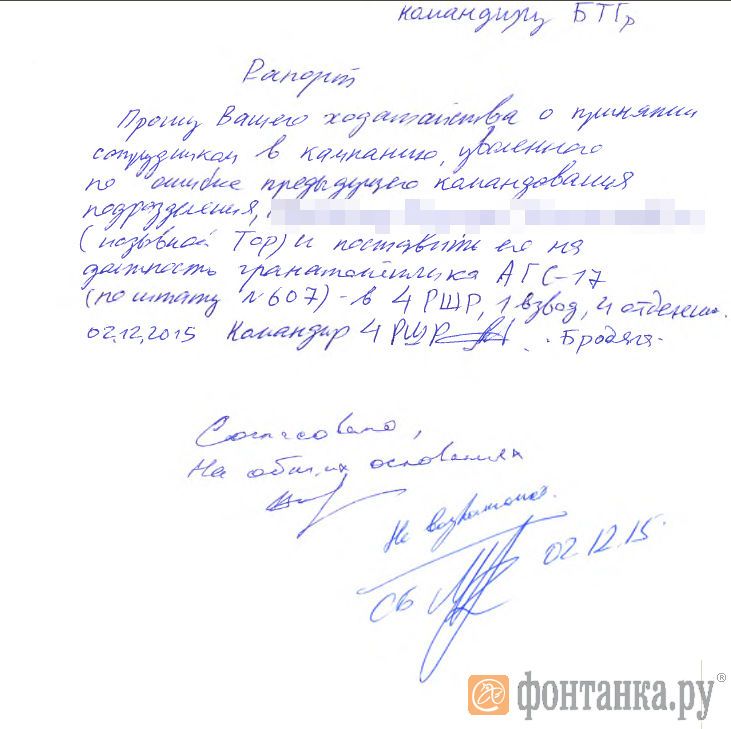 командиру БТГр
Рапорт
Прошу Вашего ходатайства о принятии
сотрудником в кампанию, уволенного
по ошибке предыдущего командования
подразделения,
(позывной Тор) и поставить его на
должность гранатомётчика АГС-17
(по штату №607) - в 4 РШР, 1 взвод, 4 отделение.
02.12.2015 Командир 4 РШР Бродяга.
Согласовано,
На общих основаниях
Не возражаю.
СБ 02.12.15.
фонтанка.ру®